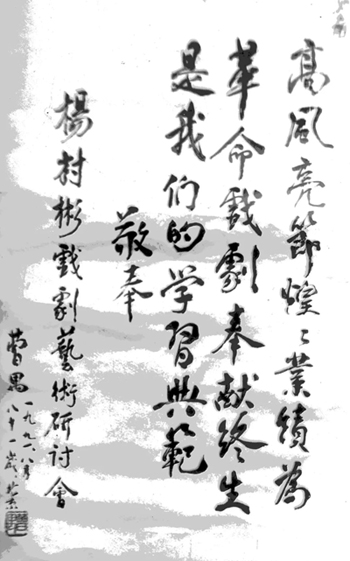 高风亮節煌〻業績為
革命戲劇奉献终生
是我们的学習典範
敬奉
楊村彬戲劇藝術研討會
曹禺
一九九一.八.
八十一歲.北京